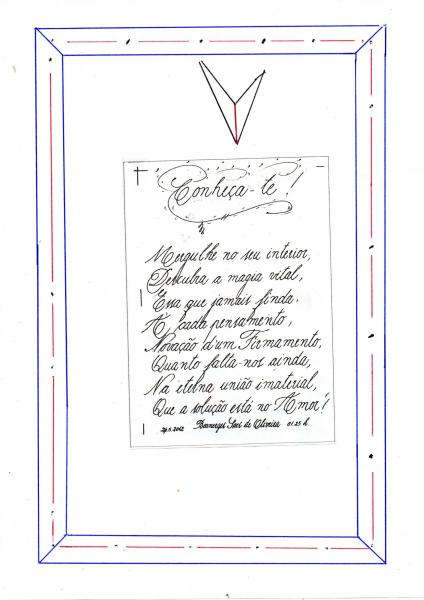 Conheça-te!
Mergulhe no seu interior,
Descubra a magia vital,
Essa que jamais finda.
A cada pensamento,
Novação d'um Firmamento,
Quanto falta-nos ainda,
Na eterna união imaterial,
Que a solução está no Amor!
2012 de Oliveira 01:25 h